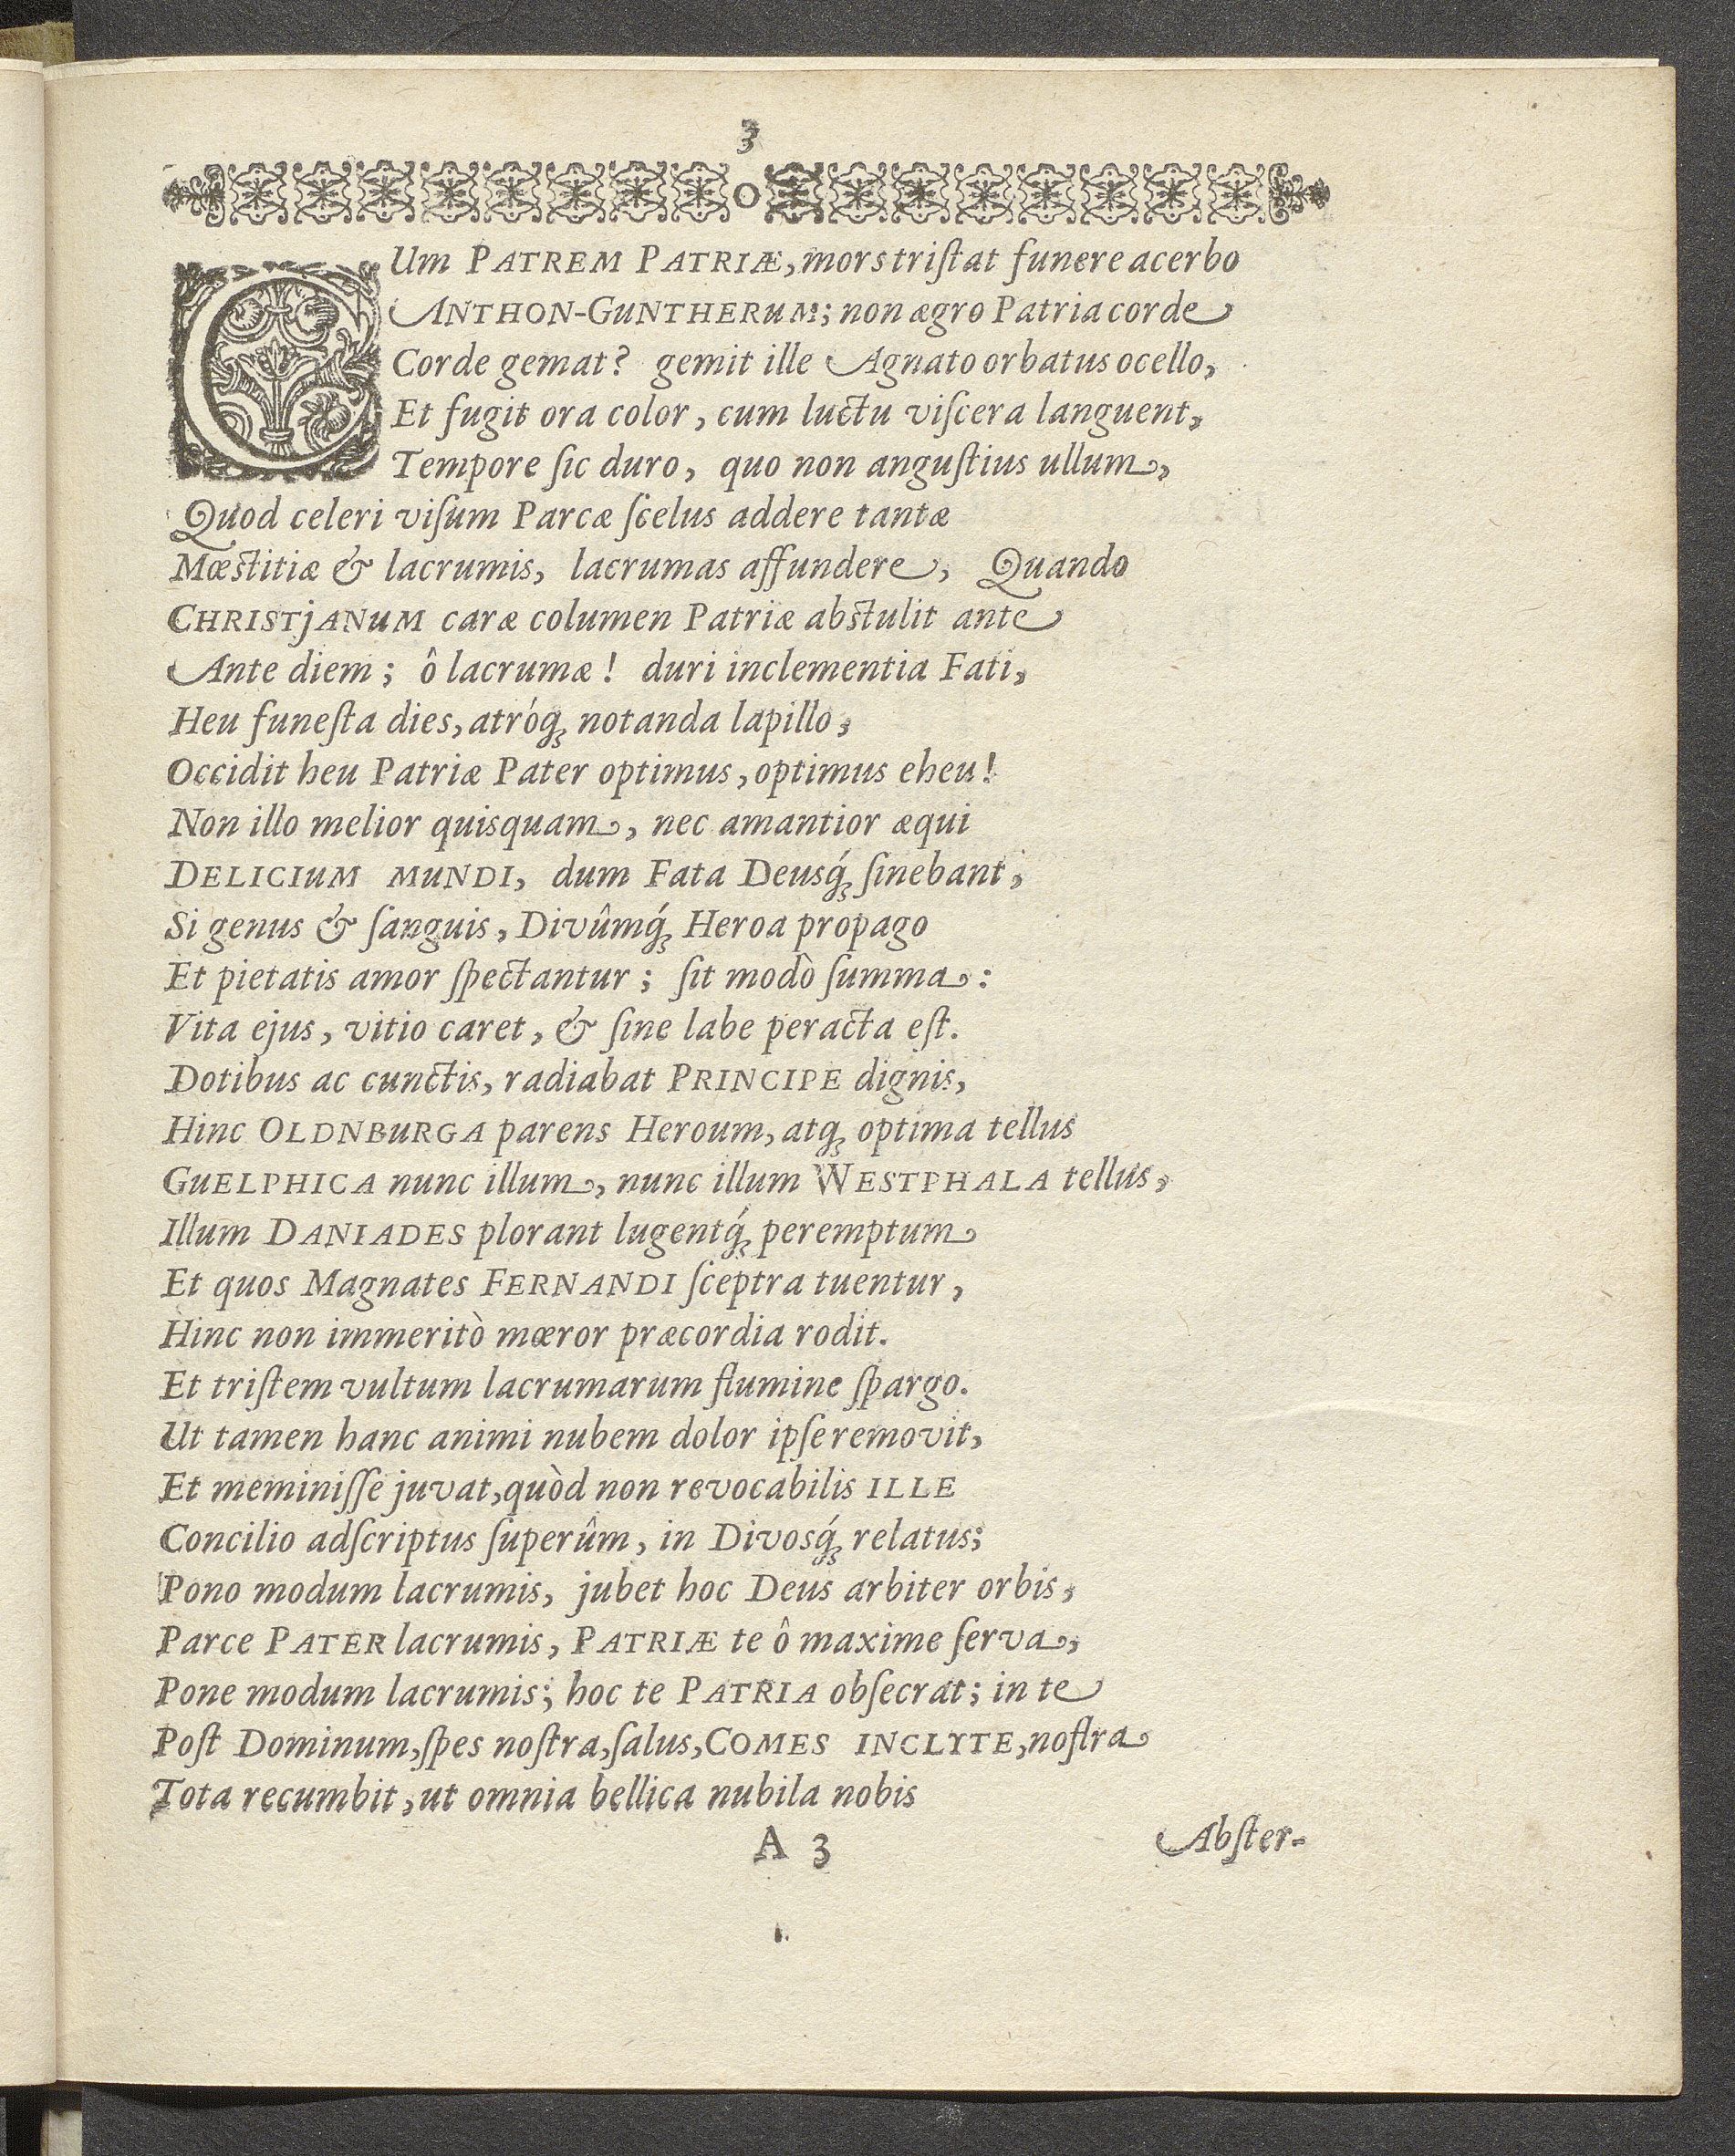 3
CUm PATREM PATRIÆ, mors triſtat funere acerbo
ANTHON-GUNTHERUM; non ægro Patria corde
Corde gemat? gemit ille Agnato orbatus ocello,
Et fugit ora color, cum luctu viſcera languent,
Tempore ſic duro, quo non anguſtius ullum,
Quod celeri viſum Parcæ ſcelus addere tantæ
Mœſtitiæ & lacrumis, lacrumas affundere, Quando
CHRISTjANUM caræ columen Patriæ abſtulit ante
Ante diem; ô lacrumæ! duri inclementia Fati,
Heu funeſta dies, atróq́ꝫ notanda lapillo,
Occidit heu Patriæ Pater optimus, optimus eheu!
Non illo melior quisquam, nec amantior æqui
DELICIUM MUNDI, dum Fata Deusq́ꝫ ſinebant,
Si genus & ſanguis, Divûmq́ꝫ Heroa propago
Et pietatis amor ſpectantur; ſit modò ſumma:
Vita ejus, vitio caret, & ſine labe peracta eſt.
Dotibus ac cunctis, radiabat PRINCIPE dignis,
Hinc OLDNBURGA parens Heroum, atqꝫ optima tellus
GUELPHICA nunc illum, nunc illum WESTPHALA tellus,
Illum DANIADES plorant lugentq́ꝫ peremptum
Et quos Magnates FERNANDI ſceptra tuentur,
Hinc non immeritò mœror præcordia rodit.
Et triſtem vultum lacrumarum flumine ſpargo.
Ut tamen hanc animi nubem dolor ipſe removit,
Et meminiſſe juvat, quòd non revocabilis ILLE
Concilio adſcriptus ſuperûm, in Divosq́ꝫ relatus;
Pono modum lacrumis, jubet hoc Deus arbiter orbis,
Parce PATER lacrumis, PATRIÆ te ô maxime ſerva,
Pone modum lacrumis; hoc te PATRIA obſecrat; in te
Poſt Dominum, ſpes noſtra, ſalus, COMES INCLYTE, noſtra
Tota recumbit, ut omnia bellica nubila nobis
A 3 Abſter-